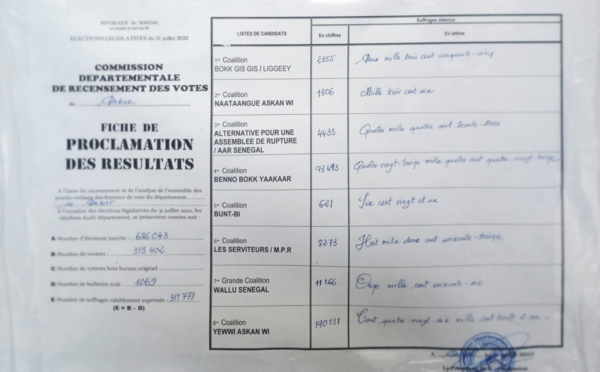 REPUBLIQUE DU SENEGAL
ELECTIONS LEGISLATIVES du 31 juillet 2022
COMMISSION
DEPARTEMENTALE
DE RECENSEMENT DES VOTES
de Dakar
FICHE DE
PROCLAMATION
DES RESULTATS
A l'issue du recensement et de l'analyse de l'ensemble des
procès-verbaux des bureaux de vote du département
de Dakar
à l'occasion des élections législatives du 31 juillet 2022, les
résultats dudit département, se présentent comme suit :
A Nombre d'électeurs inscrits : 686 043
B Nombre de votants : 313 402
C Nombre de votants hors bureau originel :
D Nombre de bulletins nuls : 1069
E Nombre de suffrages valablement exprimés : 311 778
(E = B – D)
Suffrages obtenus
LISTES DE CANDIDATS En chiffres En lettres
1ère Coalition
BOKK GIS GIS / LIGGEEY 2355 Deux mille trois cent cinquante-cinq
2ème Coalition
NAATAANGUE ASKAN WI 1306 Mille trois cent six
3ème Coalition
ALTERNATIVE POUR UNE
ASSEMBLEE DE RUPTURE
/ AAR SENEGAL 4433 Quatre mille quatre cent trente-trois
4ème Coalition
BENNO BOKK YAAKAAR 93493 Quatre vingt-treize mille quatre cent quatre-vingt-treize
5ème Coalition
BUNT-BI 621 Six cent vingt et un
6ème Coalition
LES SERVITEURS / M.P.R 8273 Huit mille deux cent soixante-treize
7ème Grande Coalition
WALLU SENEGAL 11 166 Onze mille cent soixante-six
8ème Coalition
YEWWI ASKAN WI 190131 Cent quatre-vingt-dix mille cent trente et un